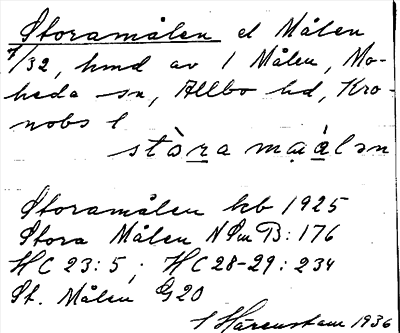 Storamålen el Målen
1/32, hmd av 1 Målen, Mo-
heda sn, Allbo hd, Kro-
nobs l
stòra maálən
Storamålen kb 1925
Stora Målen NSm B: 176
HC 23: 5; HC 28-29: 234
St. Målen G20
Härenstam 1936